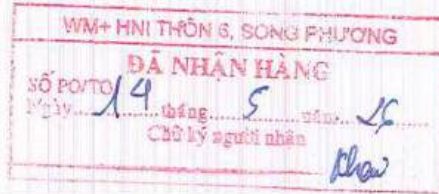 WM+ HNI THÔN 6, SONG PHƯƠNG
ĐÃ NHẬN HÀNG
SỐ PO/TO
Ngày 14 tháng 5 năm 25
Chữ ký người nhận